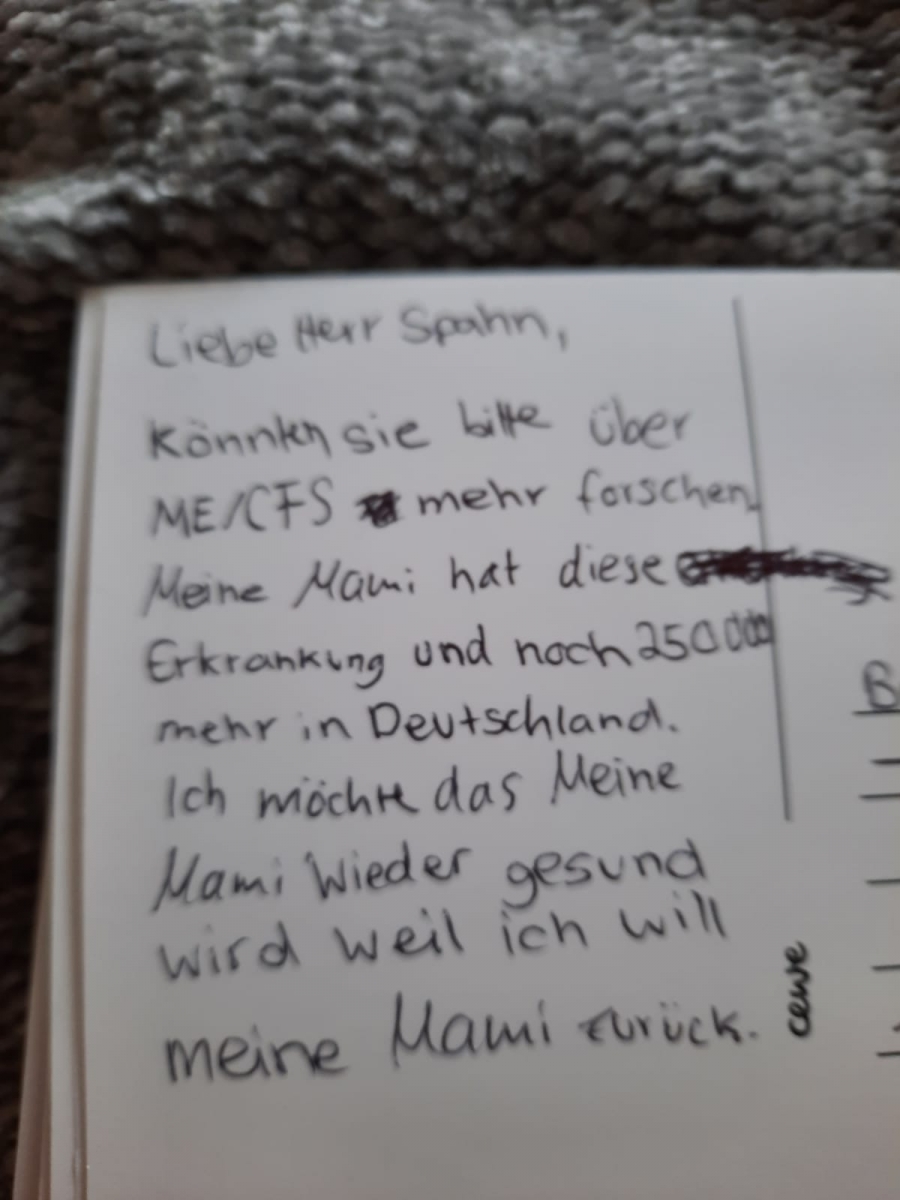 Liebe Herr Spahn,
Könnten sie bitte über
ME/CFS mehr forschen.
Meine Mami hat diese
Erkrankung und noch 250000
mehr in Deutschland.
Ich möchte das Meine
Mami Wieder gesund
wird weil ich will
meine Mami zurück.
cewe
B